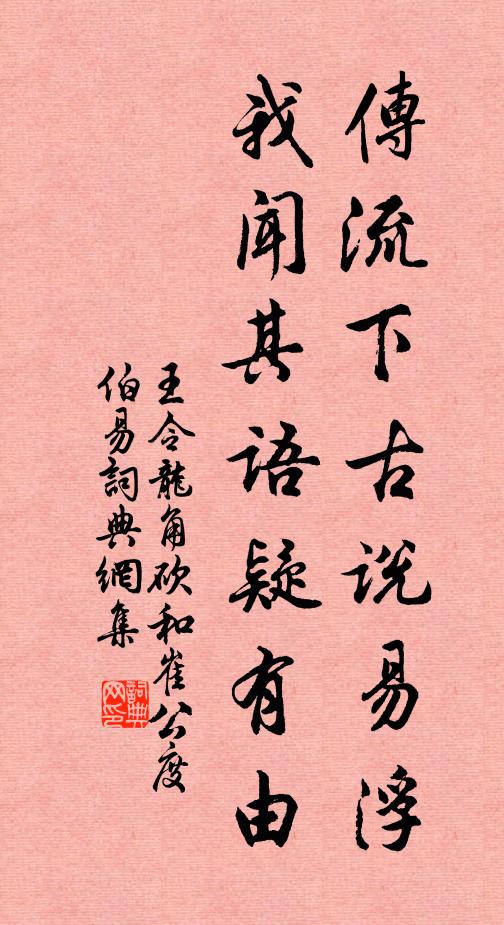 傳流下古說易浮
我聞其語疑有由
王令龍角砍和崔公度
伯易詞典網集
詞典网印